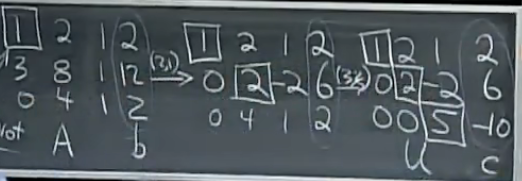 1 2 1 2 1 2 1 2 1 2 1 2
3 8 1 12 (2,1) → 0 2 -2 6 (3,2) → 0 2 -2 6
0 4 1 2 0 4 1 2 0 0 5 -10
A b U c